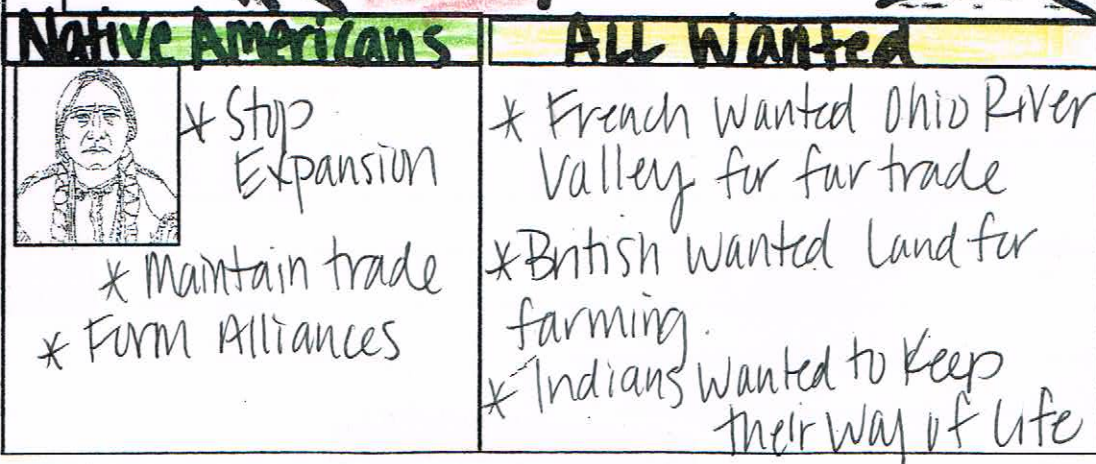 Native Americans
* Stop
Expansion
* Maintain trade
* Form Alliances
ALL Wanted
* French wanted Ohio River
Valley for fur trade
* British wanted land for
farming.
* Indians wanted to keep
their way of life